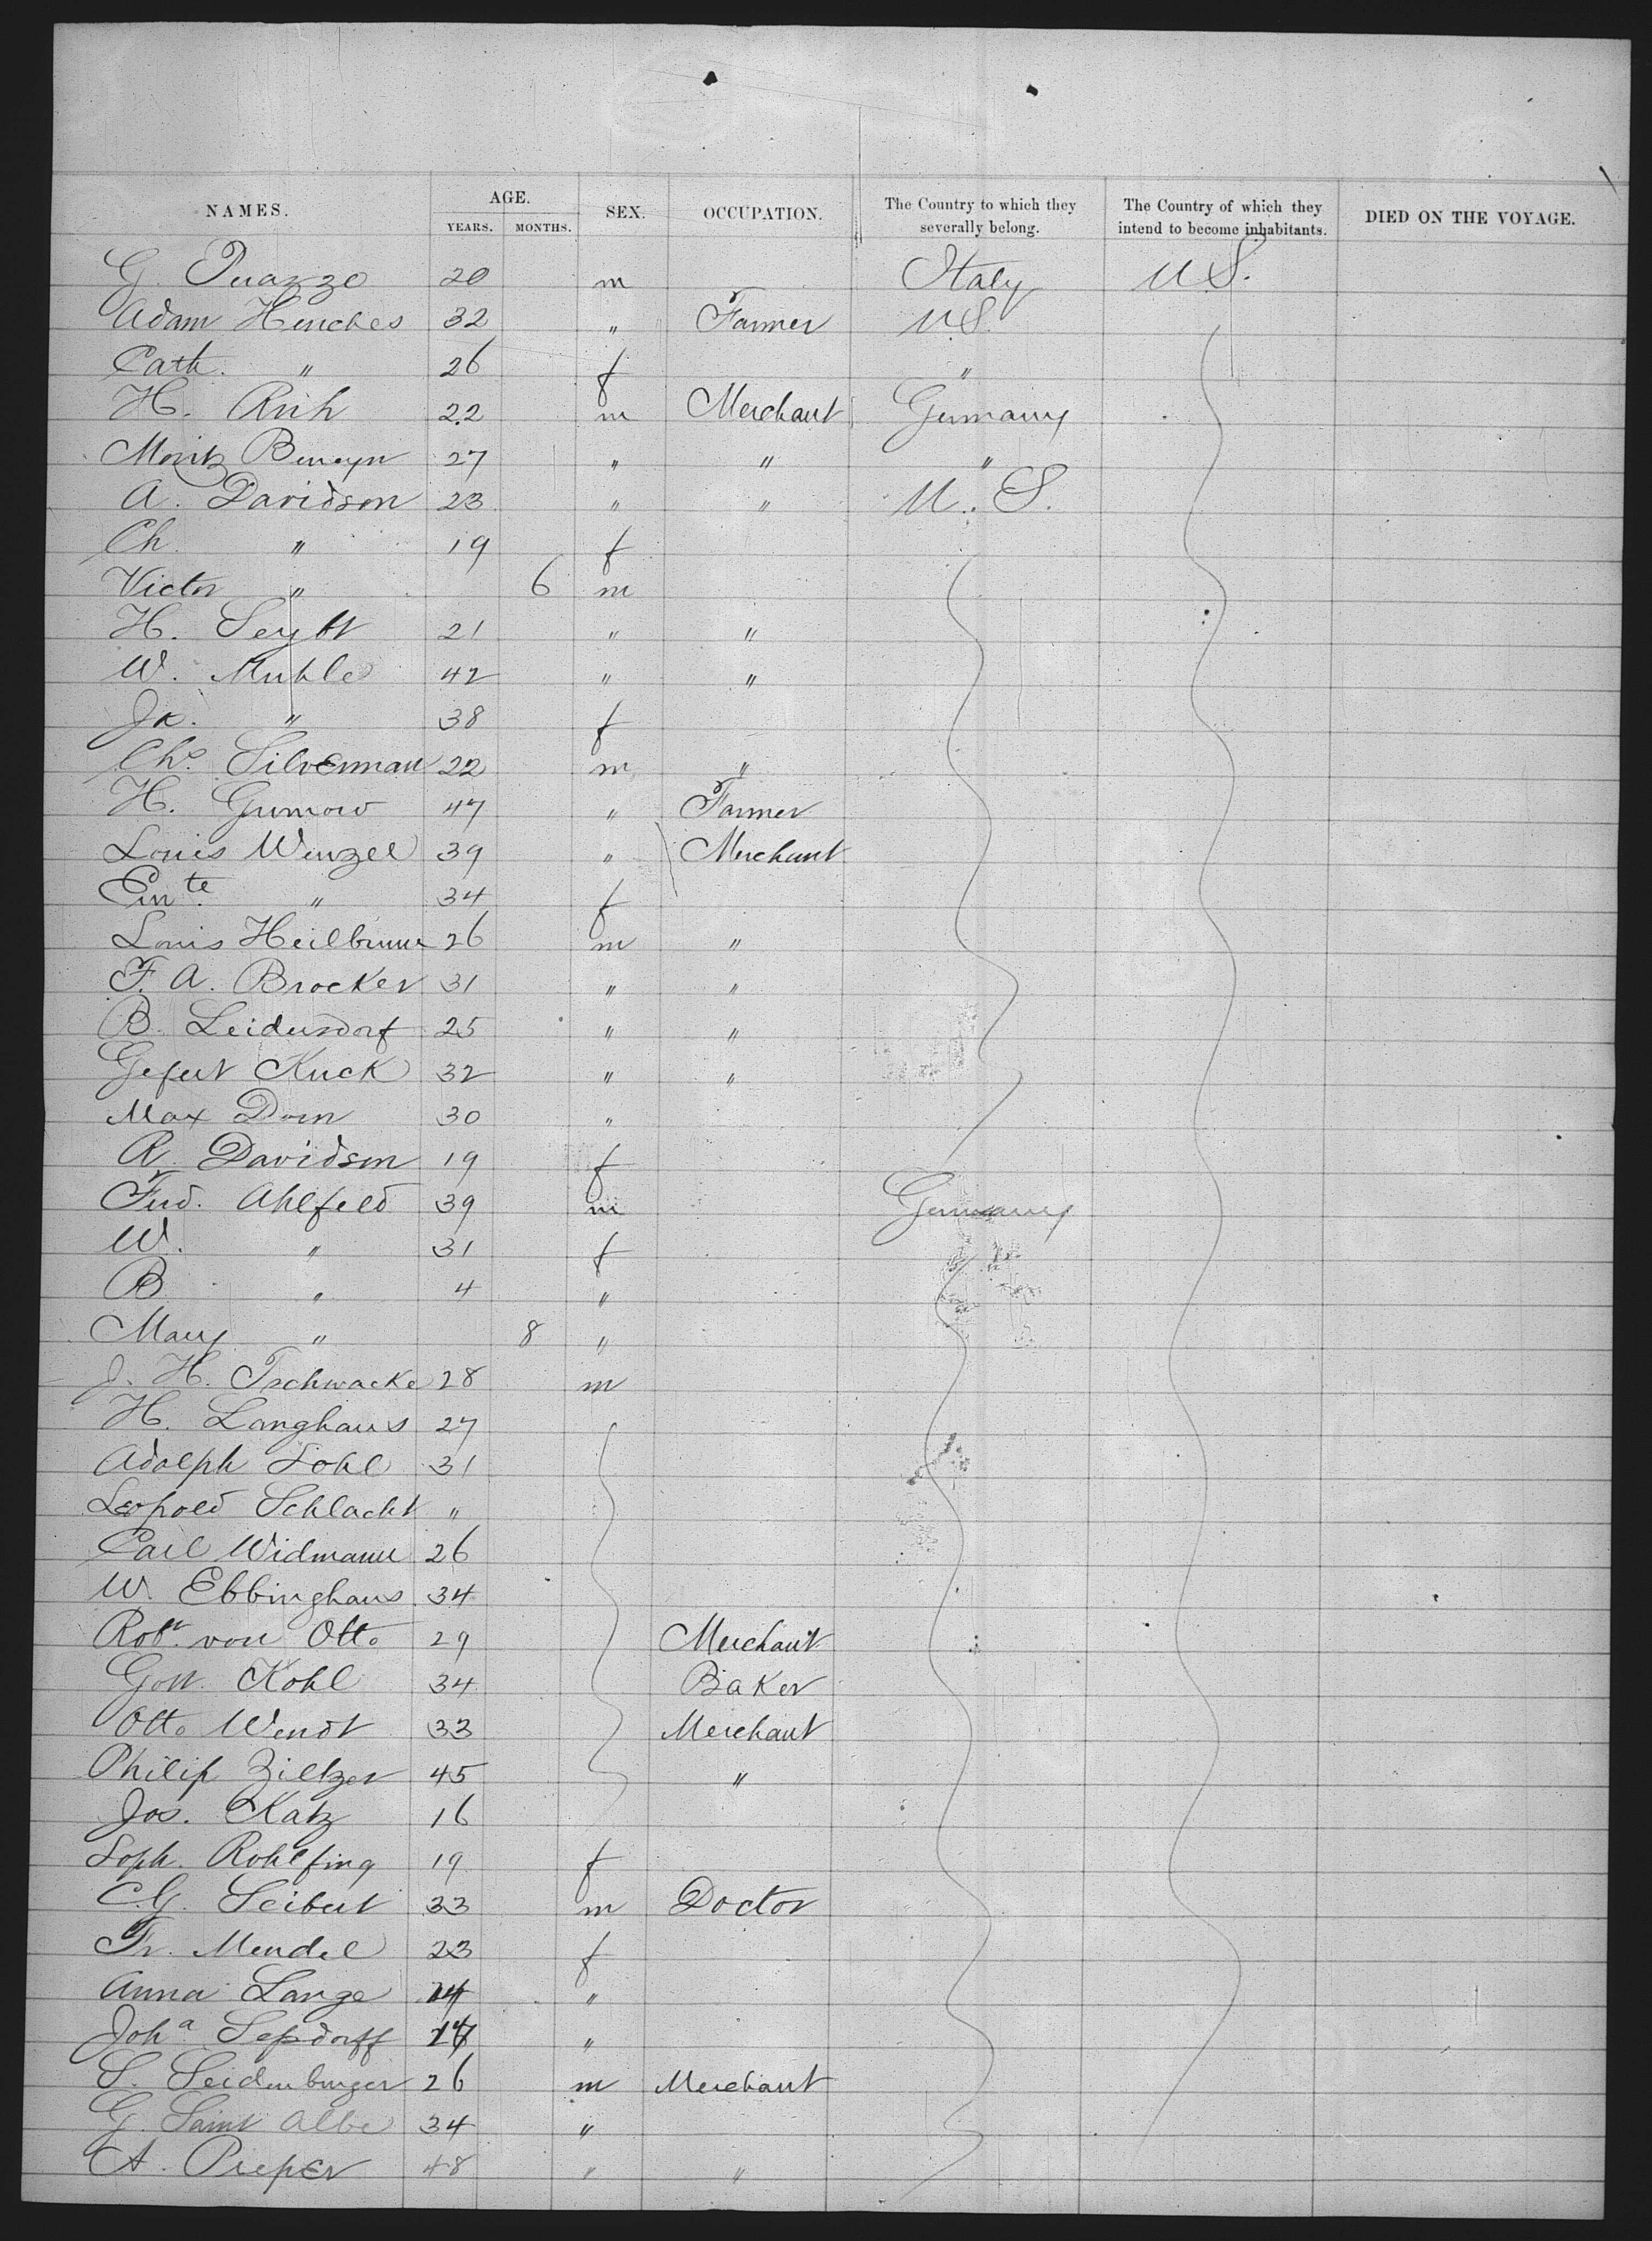 NAMES. AGE. SEX. OCCUPATION. The Country to which they severally belong. The Country of which they intend to become inhabitants. DIED ON THE VOYAGE.
YEARS. MONTHS.
G. 20 m Italy U.S.
Adam Henches 32 " Farmer U.S.
Cath. " 26 f "
H. 22 m Merchant Germany
Moritz 27 " " "
A. Davidson 23 " " U.S.
Ch. " 19 f
Victor " 6 m
H. Seybt 21 " "
W. Muhle 42 " "
" 38 f
Chs. Silverman 22 m "
H. Grumow 47 " Farmer
Louis Wenzel 39 " Merchant
" 34 f
Louis 26 m "
F. A. Brocker 31 " "
B. Leidersdorf 25 " "
Kuck 32 " "
Max Dorn 30 "
R. Davidson 19 f
Ferd. Ahlfeld 39 m Germany
W. " 31 f
B. " 4 "
Mary " 8 "
J. H. Tschwacke 28 m
H. Langhans 27
Adolph 31
Leopold Schlacht "
Carl Widmann 26
W. Ebbinghaus 34
Robt. von Otto 29 Merchant
Kohl 34 Baker
Otto Wendt 33 Merchant
Philip 45 "
Jos. Katz 16
Soph. Rohlfing 19 f
C.G. Seibert 33 m Doctor
Fr. Mendel 23 f
Anna Lange "
Joha "
S. Seidenburger 26 m Merchant
G. Saint Albe 34 "
A. Pieper 48 " "